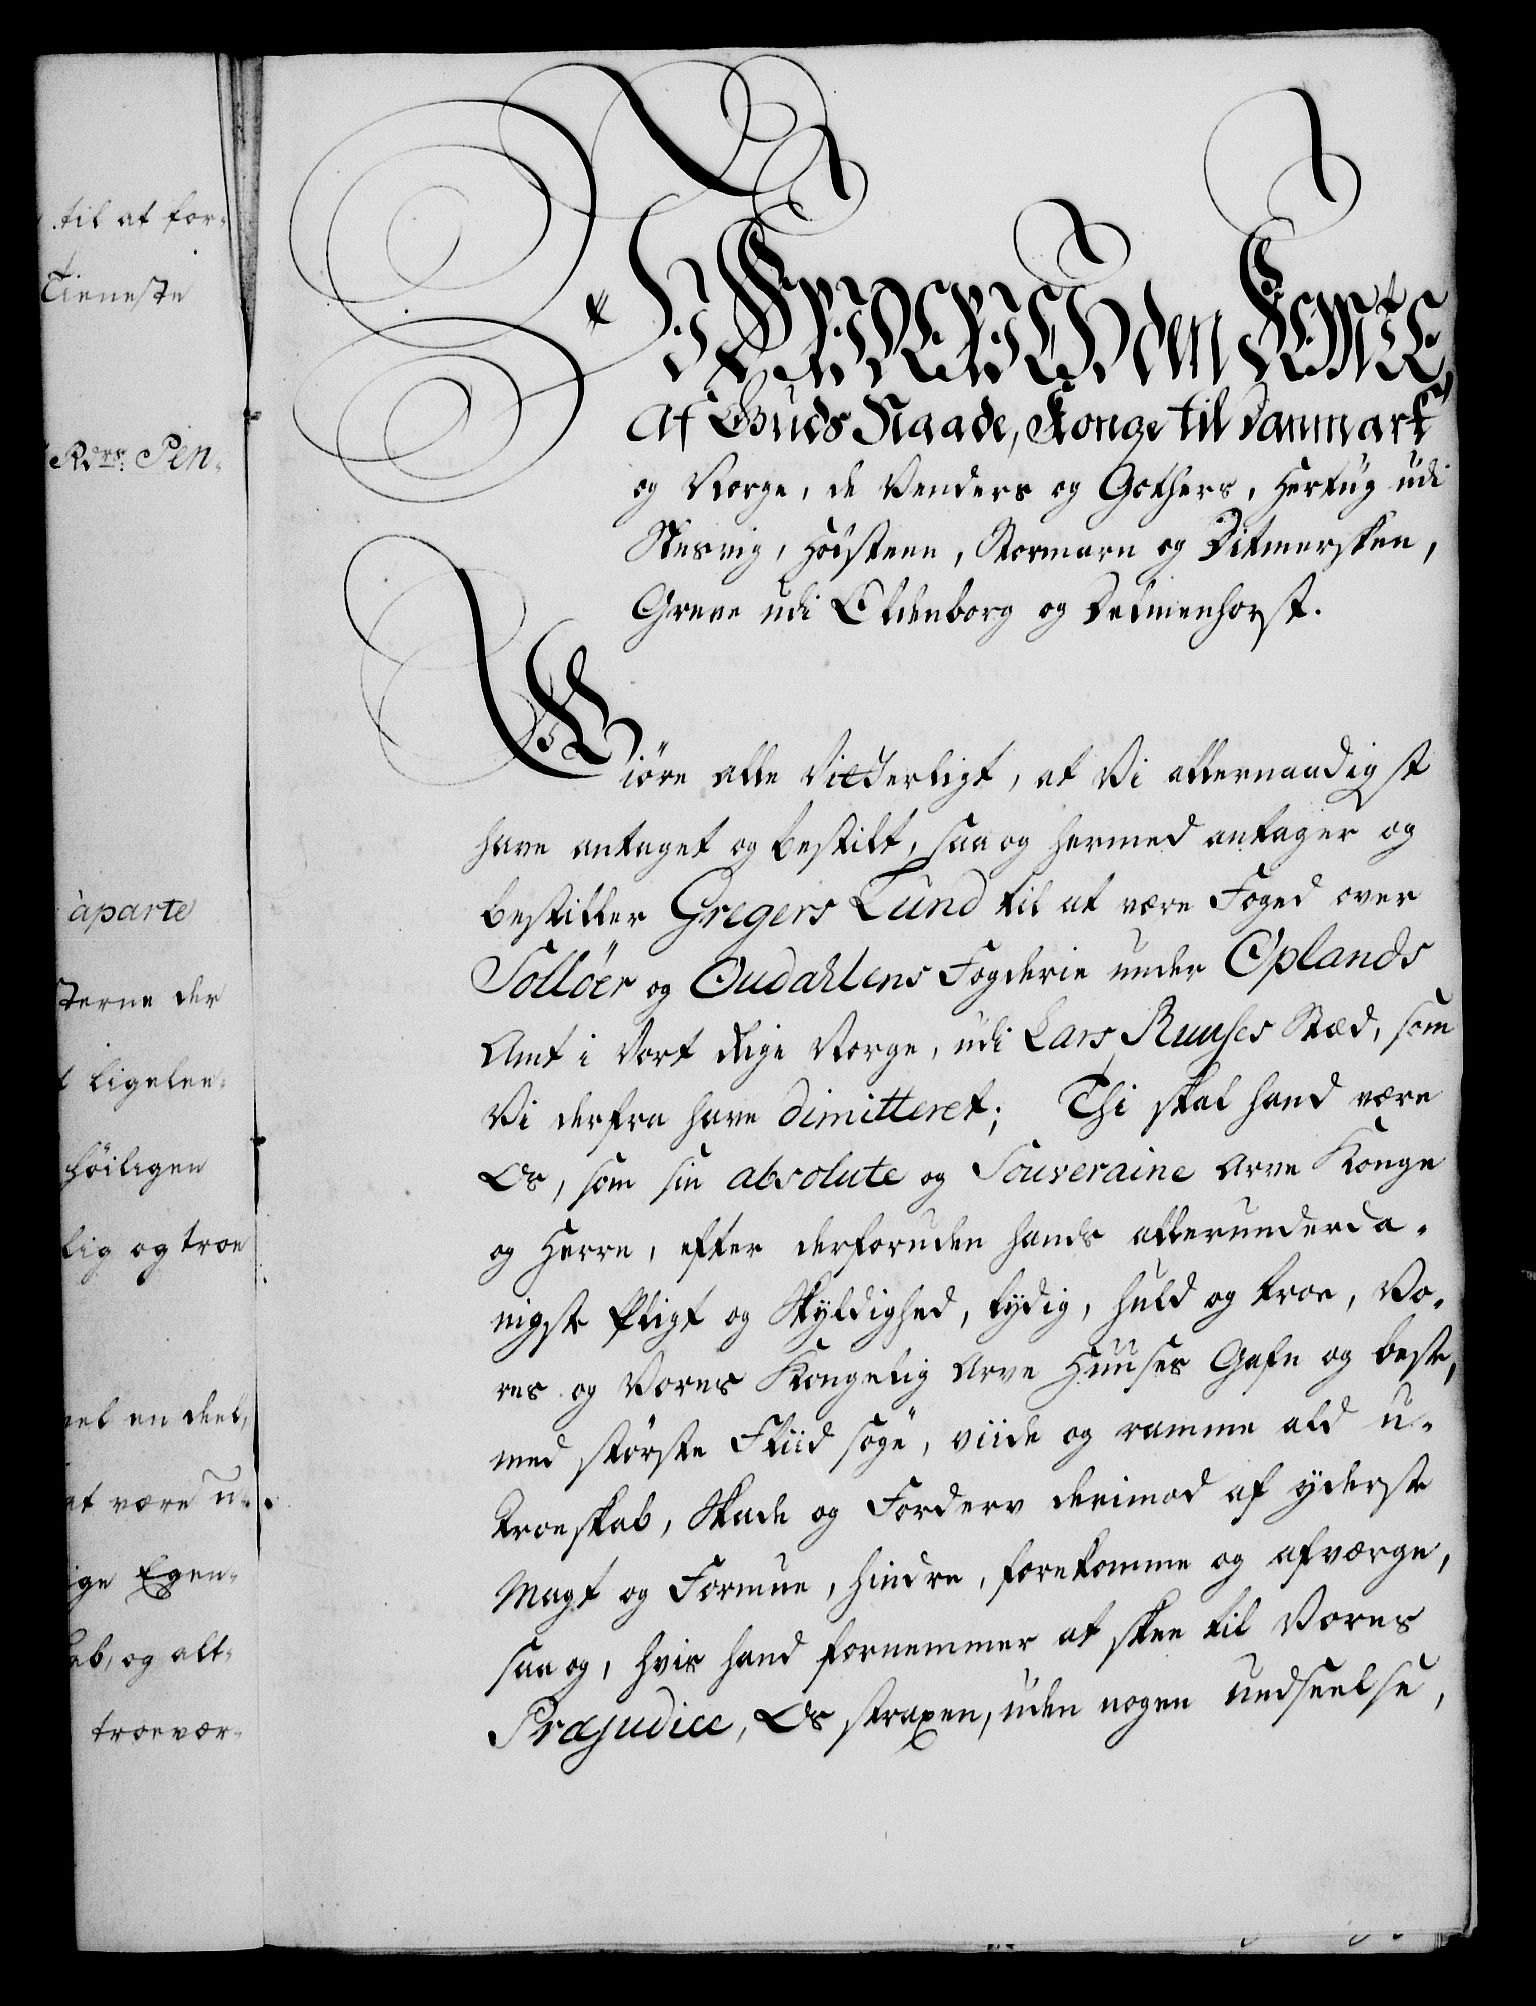 til at for-
Tieneste
Rdrs: Pen-
àparte
sterne der
ligelee-
höiligen
lig og troe
vel en deel,
at være u-
ige Egen-
ab, og alt-
troevær-
Vi FRIDERICH den FEMTE,
Af Guds Naade, Konge til Danmark
og Norge, de Venders og Gothers, Hertug udi
Slesvig, Holsteen, Stormarn og Ditmersken,
Greve udi Oldenborg og Delmenhorst.
Giöre alle Vitterligt, at Vi allernaadigst
have antaget og bestilt, saa og hermed antager og
bestiller Gregers Lund til at være Foged over
Sollöer og Oudahlens Fogderie under Oplands
Amt i Vort Rige Norge, udi Lars Ruuses Stæd, som
Vi derfra have dimitteret; Thi skal hand være
Os, som sin absolute og Souveraine Arve Konge
og Herre, efter derforuden hands allerunderda-
nigste Pligt og Skyldighed, lydig, huld og troe, Vo-
res og Vores Kongelig Arve Huuses Gafn og beste,
med störste Fliid söge, viide og ramme ald u-
troeskab, Skade og Forderv derimod af yderste
Magt og Formue, hindre, forekomme og afværge,
saa og, hvis hand fornemmer at skee til Vores
Præjudice, Os straxen, uden nogen undseelse,